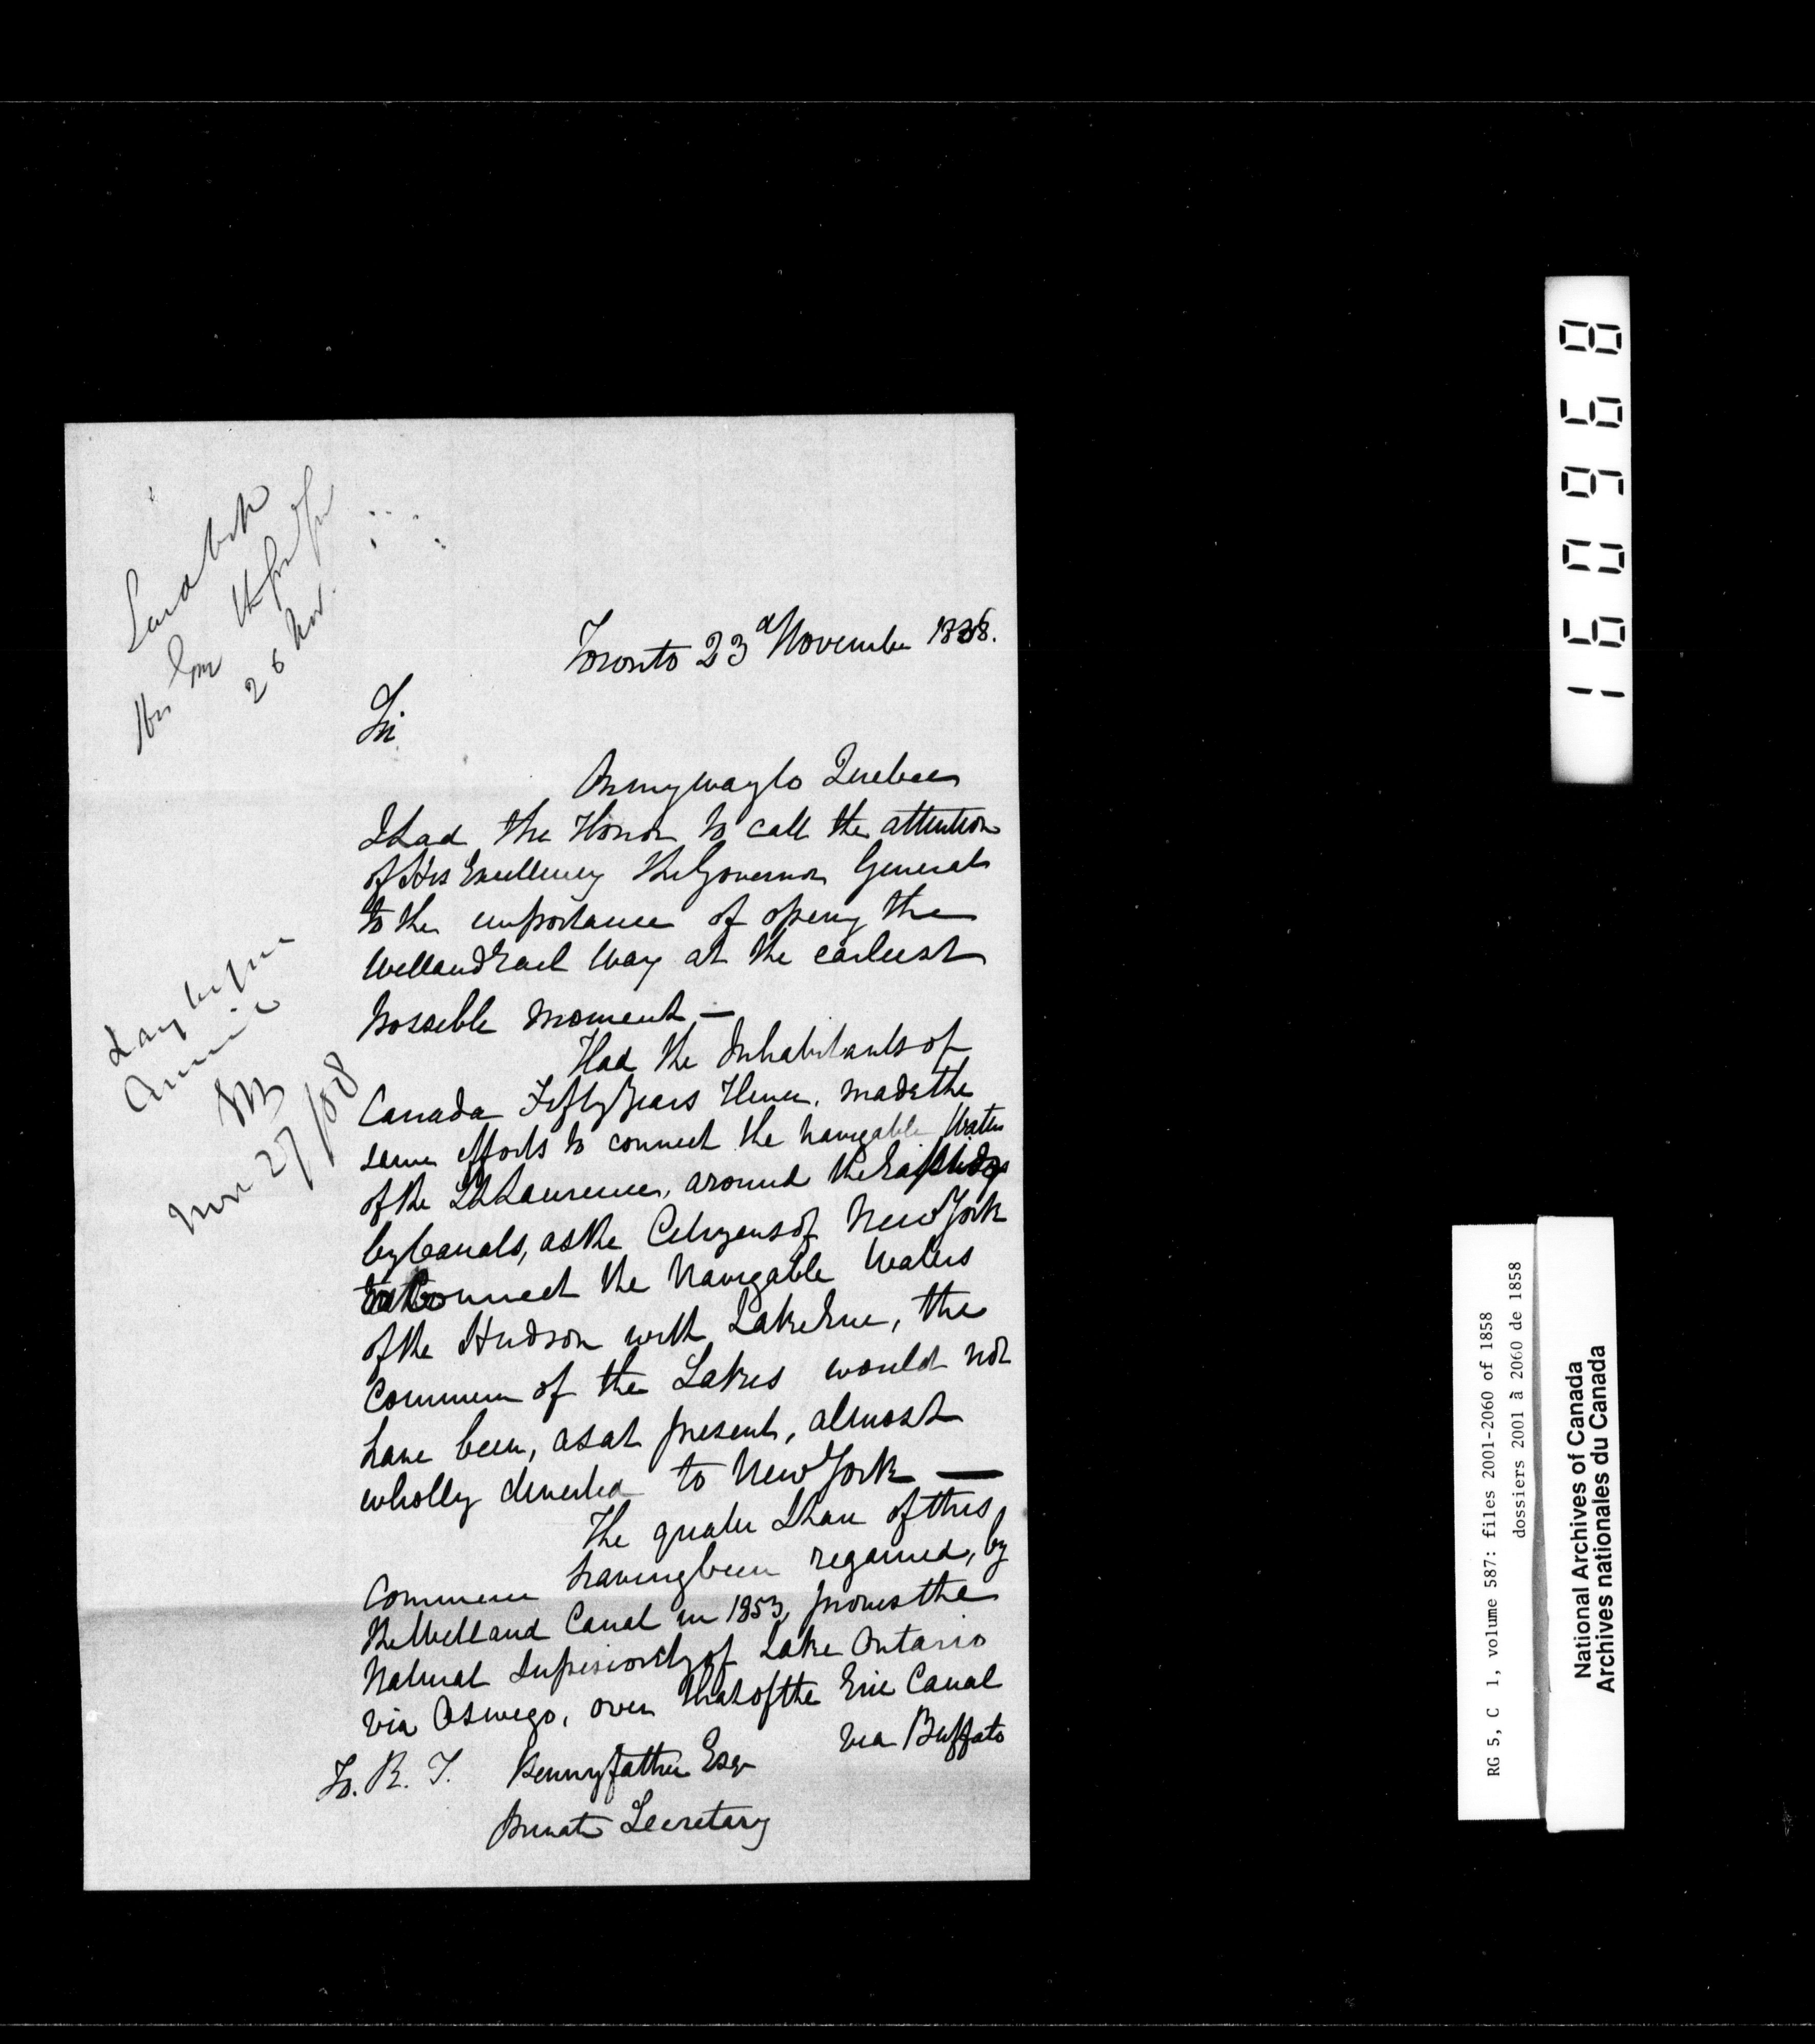 26 Nov.
Toronto 23d November 1858.
Sir
On my way to Quebec
I had the Honor to call the attention
of His Excellency The Governor General
to the importance of opening the
Welland Rail Way at the earliest
possible moment —
Had the Inhabitants of
Canada Fifty Years Hence, made the
same efforts to connect the navigable Waters
of the St Laurence, around the Rapids
by Canals, as the Citizens of New York
to Connect the Navigable Waters
of the Hudson with Lake Erie, the
Commerce of the Lakes would not
have been, as at present, almost
wholly diverted to New York —
The greater Share of this
Commerce having been regained, by
the Welland Canal in 1853, proves the
Natural Superiority of Lake Ontario
via Oswego, over that of the Erie Canal
via Buffalo
To. R. T. Pennyfather Esqr
Private Secretary
Lay before
Council
Nov 27/58
160968
RG 5, C 1, volume 587: files 2001-2060 of 1858
dossiers 2001 à 2060 de 1858
National Archives of Canada
Archives nationales du Canada